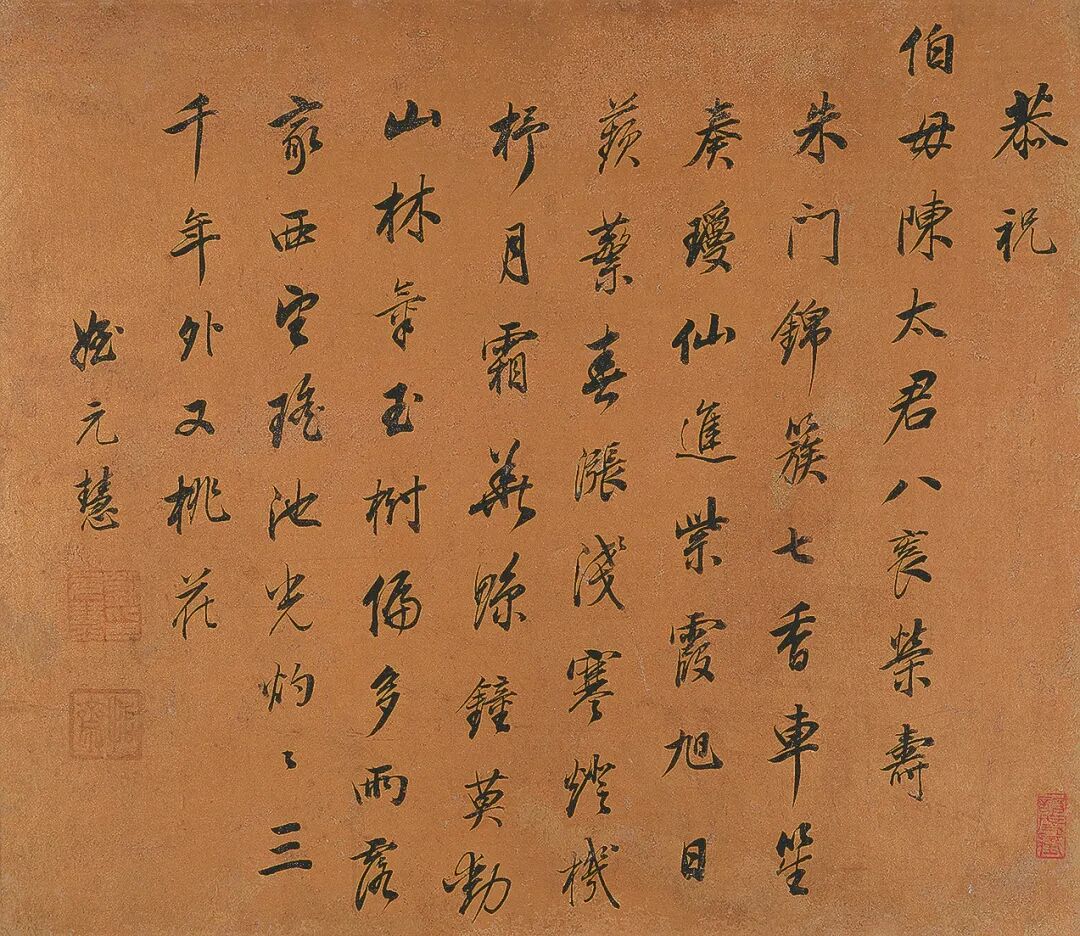 恭祝
伯母陳太君八袠榮壽
朱门錦簇七香車笙
奏瓊仙進紫霞旭日
蘋蘩春漲淺寒燈機
杼月霜華縣鐘莫動
山林氣玉樹偏多雨露
家西望瑤池光灼〻三
千年外又桃花
姪元慧